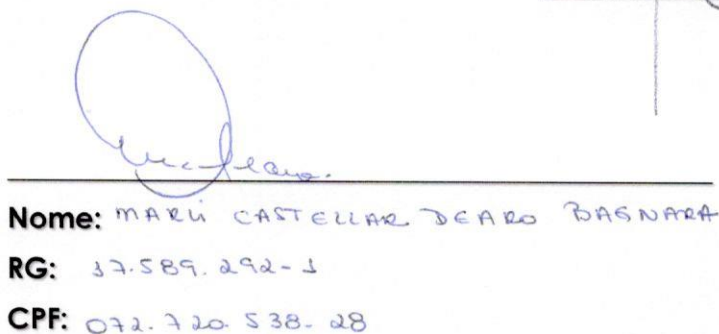 Nome: MARLi CASTELLAR DEARO BAGNARA
RG: 17.589.292-1
CPF: 072.720.538-28